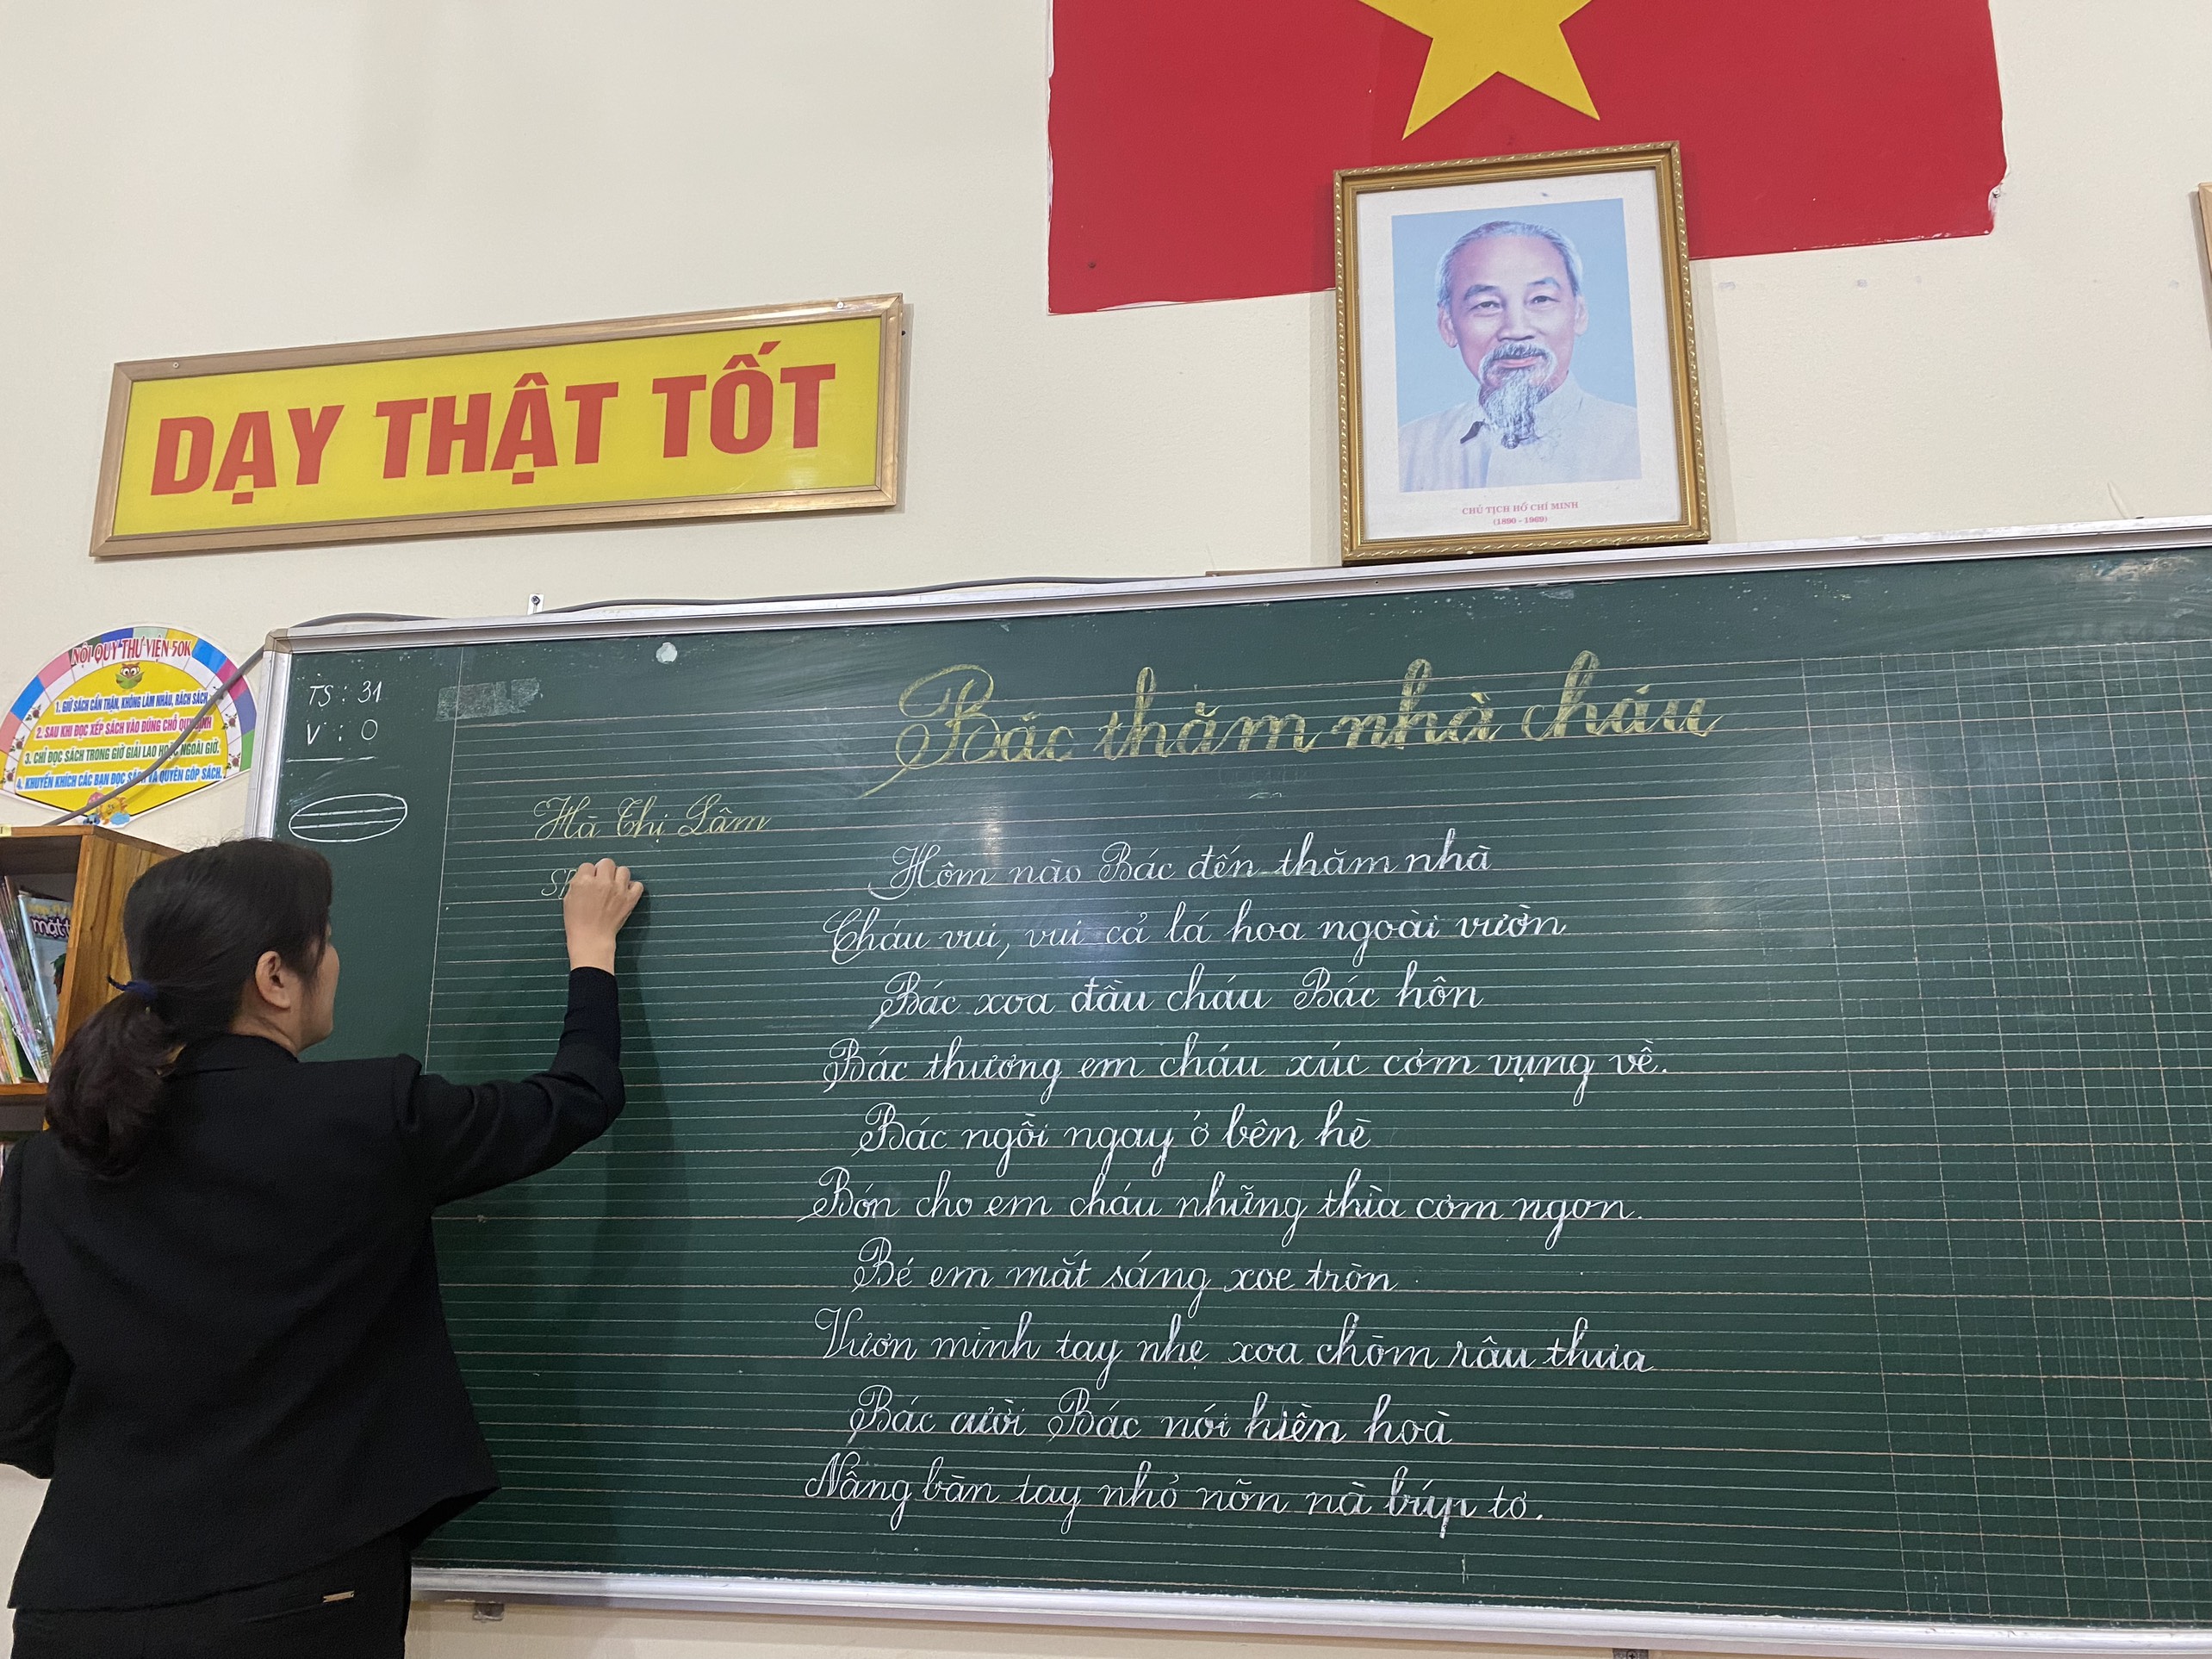 DẠY THẬT TỐT
CHỦ TỊCH HỒ CHÍ MINH
(1890 - 1969)
NỘI QUY THƯ VIỆN 50K
1. GIỮ SÁCH CẨN THẬN, KHÔNG LÀM NHÀU, RÁCH SÁCH.
2. SAU KHI ĐỌC XẾP SÁCH VÀO ĐÚNG CHỖ QUY ĐỊNH
3. CHỈ ĐỌC SÁCH TRONG GIỜ GIẢI LAO HOẶC NGOÀI GIỜ.
4. KHUYẾN KHÍCH CÁC BẠN ĐỌC SÁCH VÀ QUYÊN GÓP SÁCH.
TS : 31
V : 0
Bác thăm nhà cháu
Hà Thị Lâm
Hôm nào Bác đến thăm nhà
Cháu vui, vui cả lá hoa ngoài vườn
Bác xoa đầu cháu Bác hôn
Bác thương em cháu xúc cơm vụng về.
Bác ngồi ngay ở bên hè
Bón cho em cháu những thìa cơm ngon.
Bé em mắt sáng xoe tròn
Vươn mình tay nhẹ xoa chòm râu thưa
Bác cười Bác nói hiền hoà
Nâng bàn tay nhỏ nõn nà búp tơ.